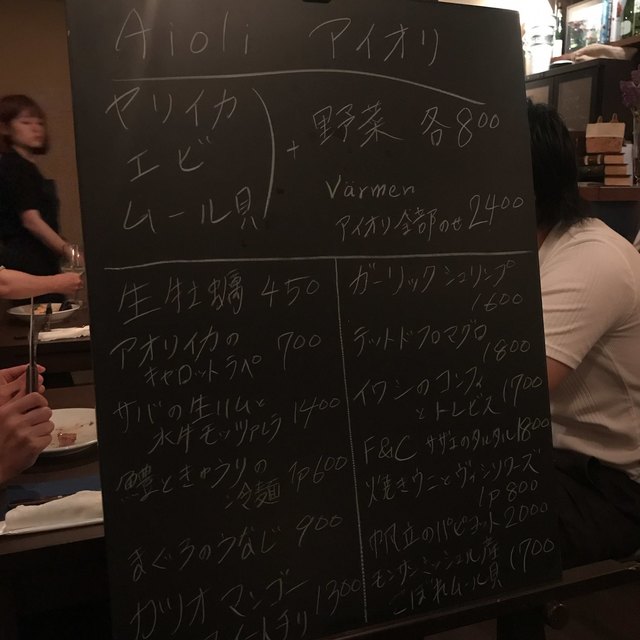 Aioli アイオリ
ヤリイカ
エビ
ムール貝
+ 野菜 各800
Värmen
アイオリ全部のせ 2400
生牡蠣 450
アオリイカの
キャロットラペ 700
サバの生リムと
水牛モッツァレラ 1400
鱧ときゅうりの
冷麺 1P600
まぐろのうなじ 900
カツオ マンゴー
1300
ガーリックシュリンプ
1600
テットドフロマグロ
1800
イワシのコンフィ
とトレビス 1700
F&C サザエのタルタル 1800
焼きウニとヴィシソワーズ
1P 800
帆立のパピヨット 2000
モンサンミッシェル産
こぼれムール貝 1700